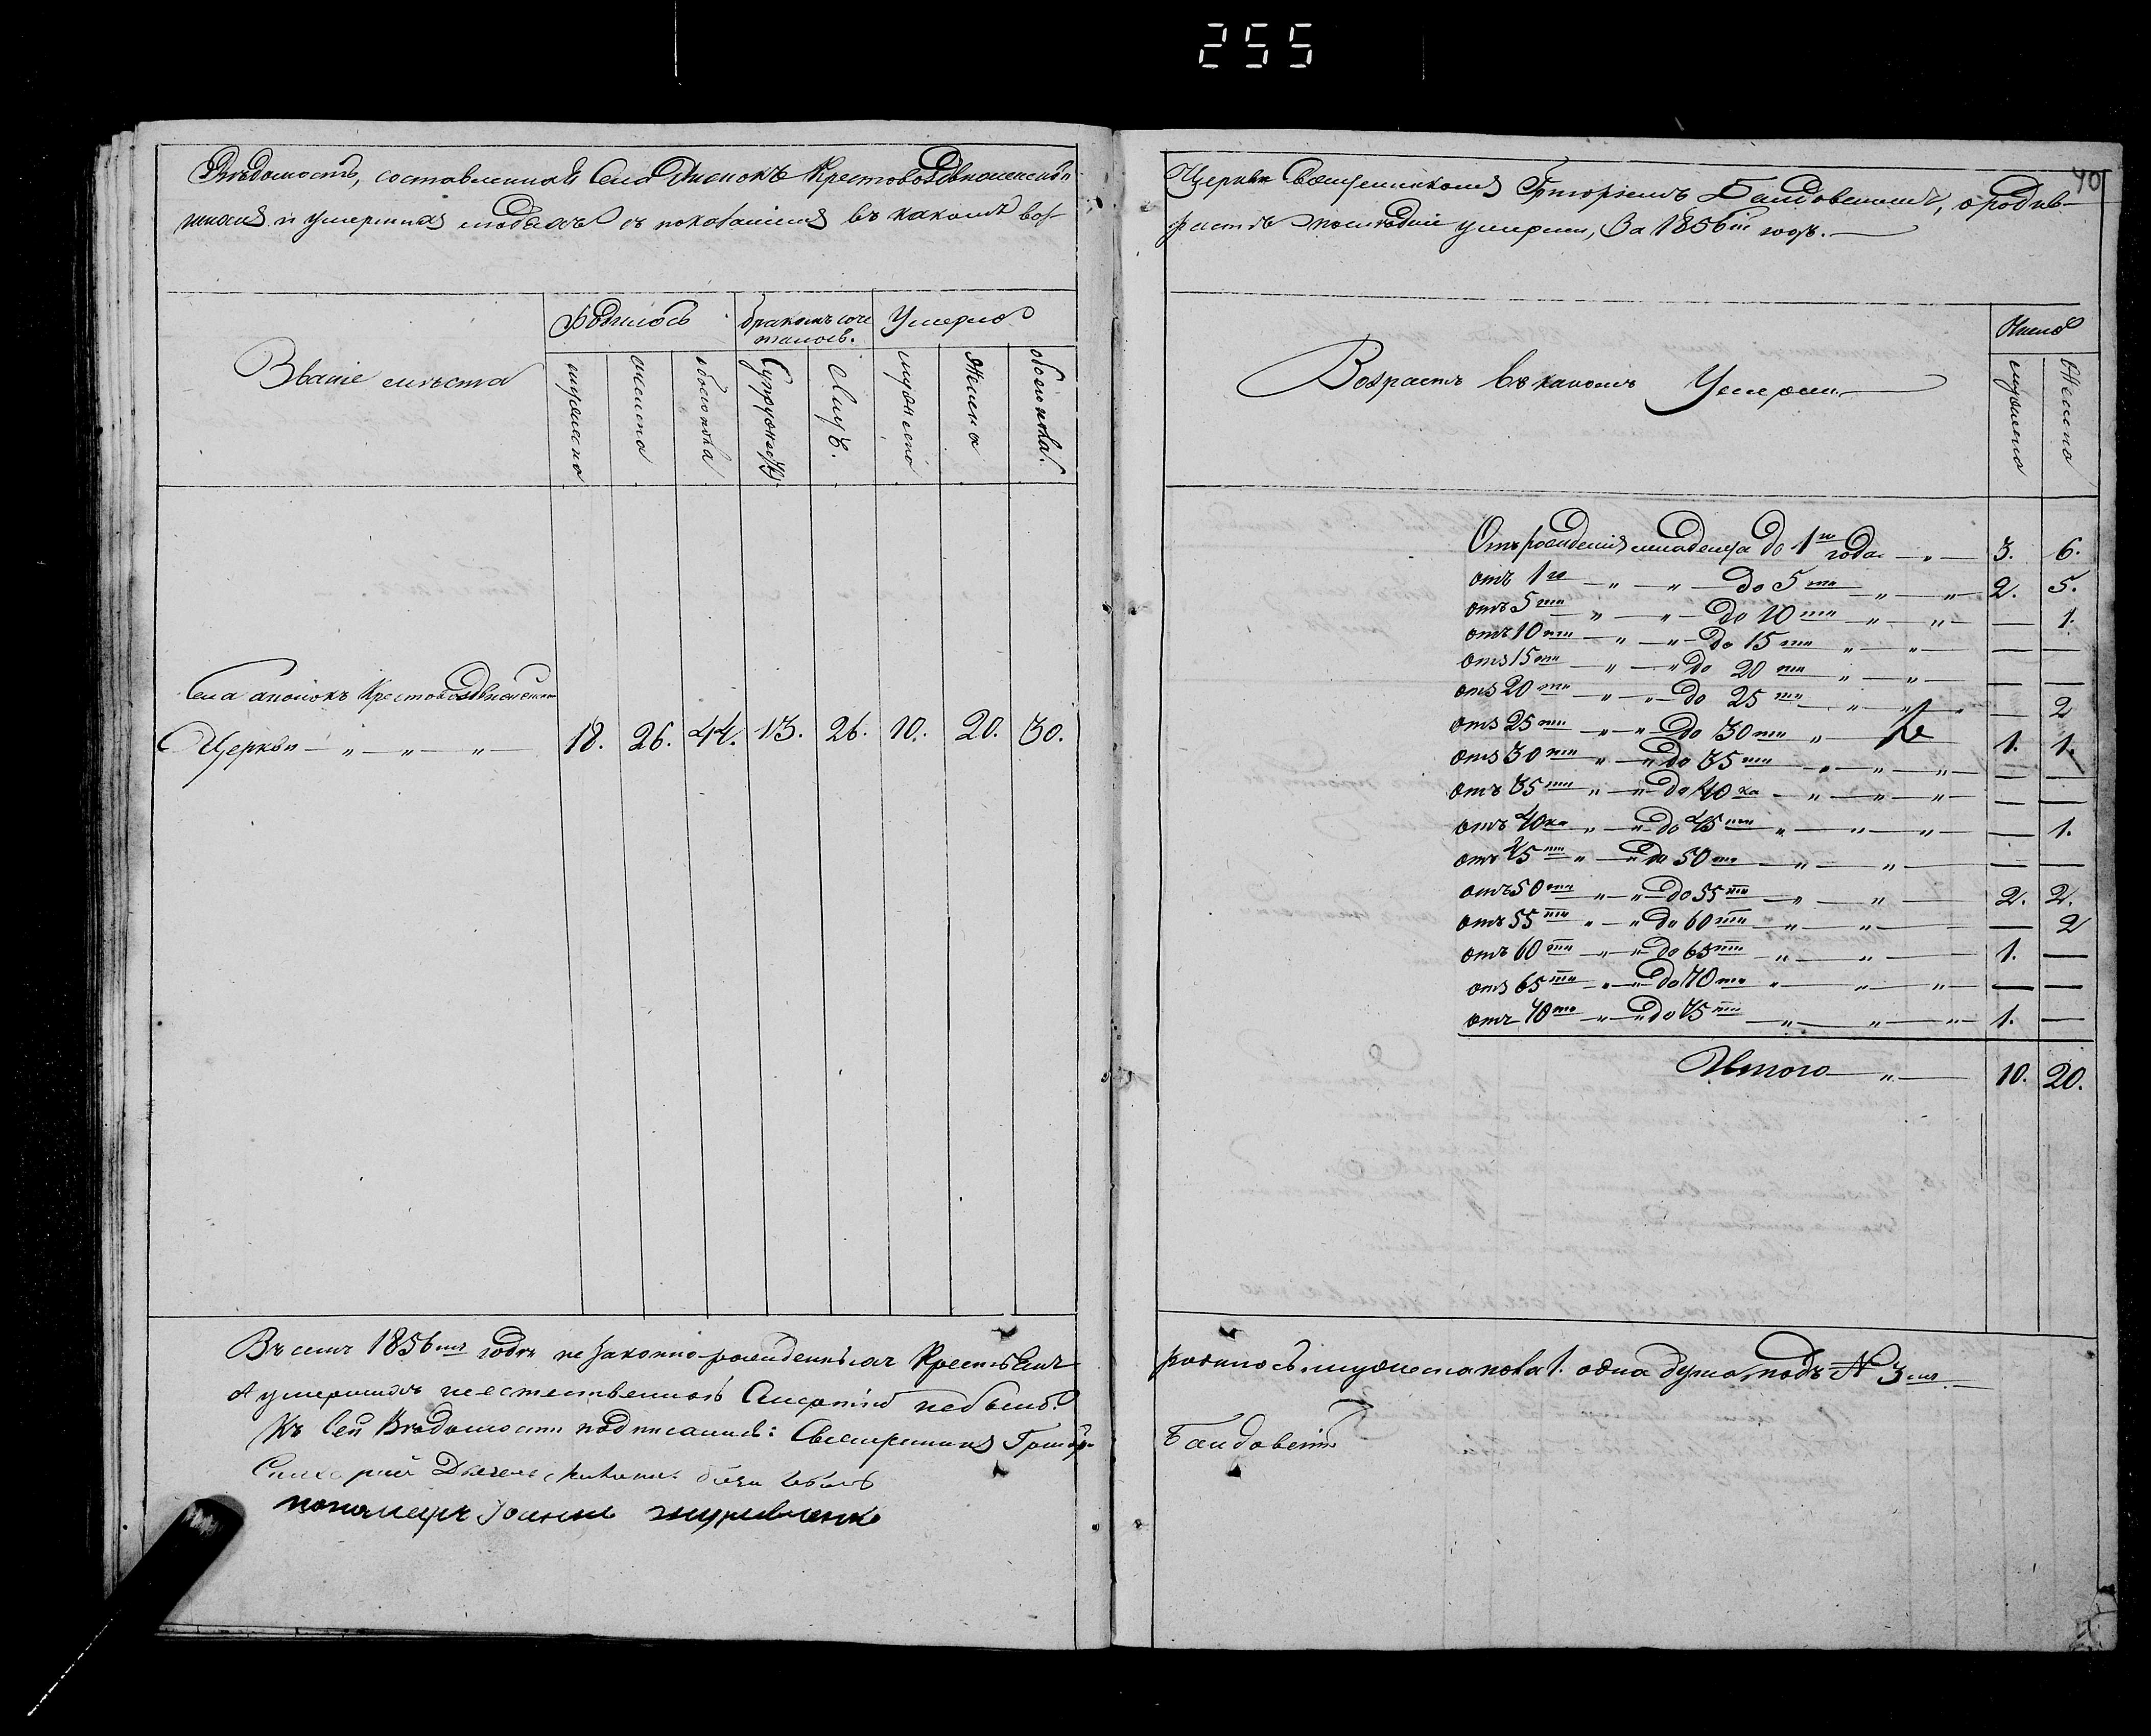 255
40
Вѣдомость, составленная Села Анонокъ Крестовоздвиженской
Церкви Священникомъ Григоріемъ Бандовскимъ, о родив-
шихся и умершихъ людяхъ съ показаніемъ въ какомъ воз-
растѣ послѣдніе умерли, За 1856й годъ.
Званіе мѣста
Родилось
бракомъ соче
талось.
Умерло
мужеска
женска
обоего пола
Супружествъ
Лицъ.
мужеска
Женска
обоего пола.
Села Анонокъ Крестовоздвиженской
Церкви — „ — „ — „ 18. 26. 44. 13. 26. 10. 20. 30.
Возрастъ въ какомъ Умерли
Число
мужеска
Женска
Отъ рожденія младенца до 1го года — „ — 3. 6.
отъ 1го — „ — „ — до 5ти — „ — „ — 2. 5.
отъ 5ти — „ — „ — до 10ти — „ — „ — — 1.
отъ 10ти — „ — „ — до 15ти „ — „ — — —
отъ 15ти — „ — „ до 20ти „ — „ — — —
отъ 20ти — „ — „ — до 25ти — „ — „ — — 2
отъ 25ти — „ — „ — до 30ти „ — 1. 1.
отъ 30ти — „ — „ до 35ти — „ — „ — „ — —
отъ 35ти — „ — „ — до 40ка — „ — „ — „ — —
отъ 40ка „ — „ — до 45ти „ — „ — „ — — 1.
отъ 45ти „ — „ до 50ти — „ — „ — — —
отъ 50ти — „ — „ — до 55ти — „ — „ — 2. 2.
отъ 55ти „ — „ до 60ти — „ — „ — — 2
отъ 60ти — „ — „ до 65ти — „ — „ — 1. —
отъ 65ти — „ — до 70ти „ — „ — „ — —
отъ 70ти — „ — „ до 75ти — „ — „ — „ — 1. —
Итого — „ — 10. 20.
Въ семъ 1856мъ годѣ незаконно рожденныхъ
родилось мужеска пола 1. одна душа подъ № 3мъ.
А умершихъ неестественною Смертію небыло.
Къ сей Вѣдомости подписались: Священникъ Григорій
Бандовскій
пономарь Іоаннъ Журавленко